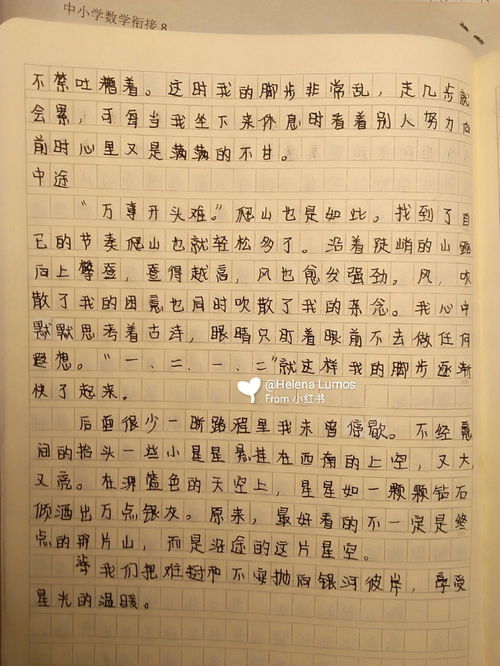 中小学数学衔接8
不禁吐糟着。这时我的脚步非常乱，走几步就
会累，可每当我坐下来休息时看着别人努力向
前时心里又是满满的不甘。
中途
“万事开头难。”爬山也是如此。找到了自
己的节奏爬山也就轻松多了。沿着陡峭的山路
向上攀登，登得越高，风也愈发强劲。风，吹
散了我的困意也同时吹散了我的杂念。我心中
默默思考着古诗，眼睛只盯着眼前不去做任何
遐想。“一、二、一、二”就这样我的脚步逐渐
快了起来。
@Helena Lumos
From 小红书
后面很少一断路程里我未曾停歇。不经意
间的抬头一些小星星悬挂在西南的上空，又大
又亮。在深蓝色的天空上，星星如一颗颗钻石
倾洒出万点银灰。原来，最好看的不一定是终
点的那片山，而是沿途的这片星空。
我们把难过和不安抛向银河彼岸，享受
星光的温暖。